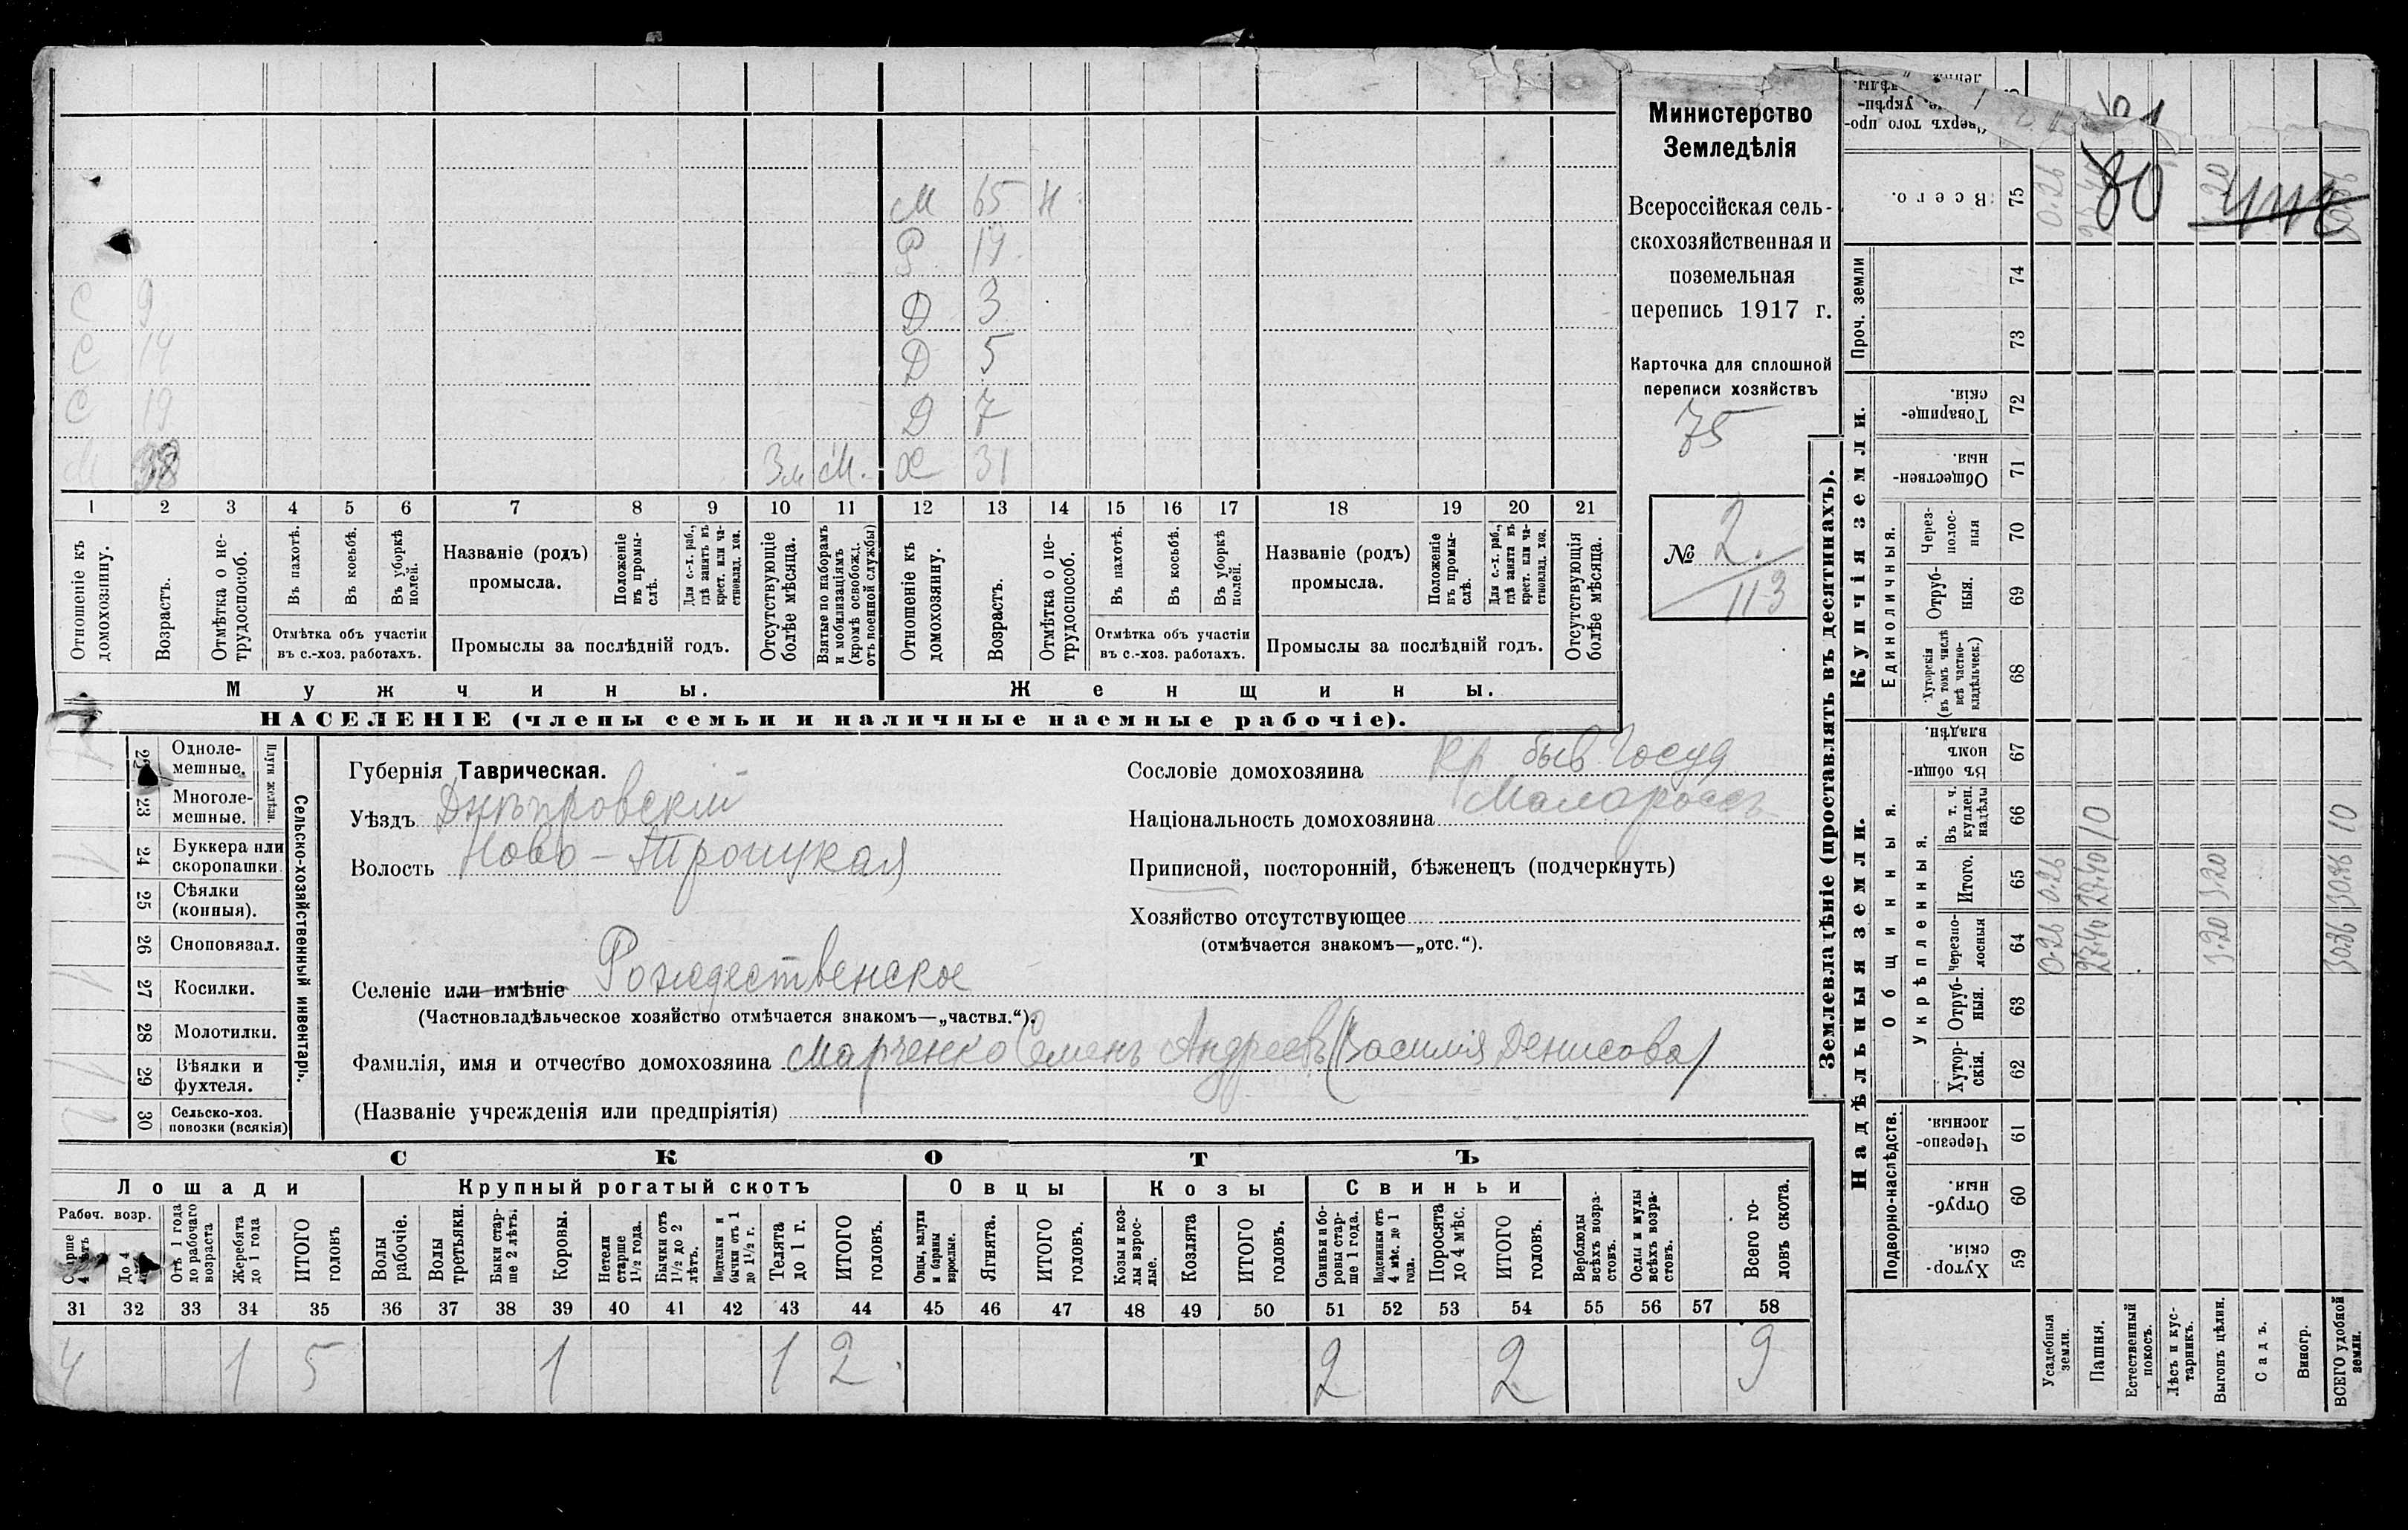 М 65 Н
Р 19
С 9 Д 3
С 14 Д 5
С 19 Д 7
М 38 3м М. Ж 31
1 2 3 4 5 6 7 8 9 10 11 12 13 14 15 16 17 18 19 20 21
Отношеніе къ домохозяину.
Возрастъ.
Отмѣтка о нетрудоспособ.
Въ пахотѣ.
Въ косьбѣ.
Въ уборкѣ полей.
Названіе (родъ) промысла.
Положеніе въ промыслѣ.
Для с.-х. раб., гдѣ занятъ въ крест. или частновлад. хоз.
Отсутствующіе болѣе мѣсяца.
Взятые по наборамъ и мобилизаціямъ (кромѣ освобожд. отъ военной службы)
Отношеніе къ домохозяину.
Возрастъ.
Отмѣтка о нетрудоспособ.
Въ пахотѣ.
Въ косьбѣ.
Въ уборкѣ полей.
Названіе (родъ) промысла.
Положеніе въ промыслѣ.
Для с.-х. раб., гдѣ занята въ крест. или частновлад. хоз.
Отсутствующія болѣе мѣсяца.
Отмѣтка объ участіи въ с.-хоз. работахъ.
Промыслы за послѣдній годъ.
Отмѣтка объ участіи въ с.-хоз. работахъ.
Промыслы за послѣдній годъ.
Мужчины.
Женщины.
НАСЕЛЕНІЕ (члены семьи и наличные наемные рабочіе).
Министерство
Земледѣлія
Всероссійская сель-
скохозяйственная и
поземельная
перепись 1917 г.
Карточка для сплошной
переписи хозяйствъ
75
№ 2.
113
Сельско-хозяйственный инвентарь.
Плуги желѣзн.
Одноле-
мешные.
23 Многоле-
мешные.
24 Буккера или
скоропашки
25 Сѣялки
(конныя).
26 Сноповязал.
27 Косилки.
28 Молотилки.
29 Вѣялки и
фухтеля.
30 Сельско-хоз.
повозки (всякія)
Губернія Таврическая.
Уѣздъ Днѣпровскій
Волость Ново-Троицкая
Селеніе или имѣніе Рождественское
(Частновладѣльческое хозяйство отмѣчается знакомъ—„частвл.“).
Фамилія, имя и отчество домохозяина Марченко Семенъ Андреевъ (Василія Денисова)
(Названіе учрежденія или предпріятія)
Сословіе домохозяина Кр быв Госуд
Національность домохозяина Малороссъ
Приписной, посторонній, бѣженецъ (подчеркнуть)
Хозяйство отсутствующее
(отмѣчается знакомъ—„отс.“).
СКОТЪ
Лошади
Крупный рогатый скотъ
Овцы
Козы
Свиньи
Рабоч. возр.
Старше 4 лѣтъ
До 4
Отъ 1 года до рабочаго возраста
Жеребята до 1 года
ИТОГО головъ
Волы рабочіе.
Волы третьяки.
Быки старше 2 лѣтъ.
Коровы.
Нетели старше 1½ года.
Бычки отъ 1½ до 2 лѣтъ.
Подтелки и бычки отъ 1 до 1½ г.
Телята до 1 г.
ИТОГО головъ.
Овцы, валухи и бараны взрослые.
Ягнята.
ИТОГО головъ.
Козы и козлы взрослые.
Козлята
ИТОГО головъ.
Свиньи и боровы старше 1 года.
Подсвинки отъ 4 мѣс. до 1 года.
Поросята до 4 мѣс.
ИТОГО головъ.
Верблюды всѣхъ возрастовъ.
Ослы и мулы всѣхъ возрастовъ.
Всего головъ скота.
31 32 33 34 35 36 37 38 39 40 41 42 43 44 45 46 47 48 49 50 51 52 53 54 55 56 57 58
4 1 5 1 1 2 2 2 9
Землевладѣніе (проставлять въ десятинахъ).
Надѣльныя земли.
Купчія земли.
Проч. земли
Подворно-наслѣдств.
Общинныя.
Укрѣпленныя.
Единоличныя.
Сверхъ того про-
Всего. 75
74
73
Товарищескія. 72
Общественныя. 71
Черезполосныя 70
Отрубныя. 69
Хуторскія (въ томъ числѣ всѣ частновладѣльческ.) 68
Въ общинномъ владѣн. 67
Въ т. ч. куплен. надѣлы 66 10 10
Итого. 65 0.26 27.40 3.20 30.86
Черезполосныя 64 0.26 27.40 3.20 30.86
Отрубныя. 63
Хуторскія. 62
Черезполосныя. 61
Отрубныя. 60
Хуторскія. 59
Усадебныя земли.
Пашня.
Естественный покосъ.
Лѣсъ и кустарникъ.
Выгонъ цѣлин.
Садъ.
Виногр.
ВСЕГО удобной земли.